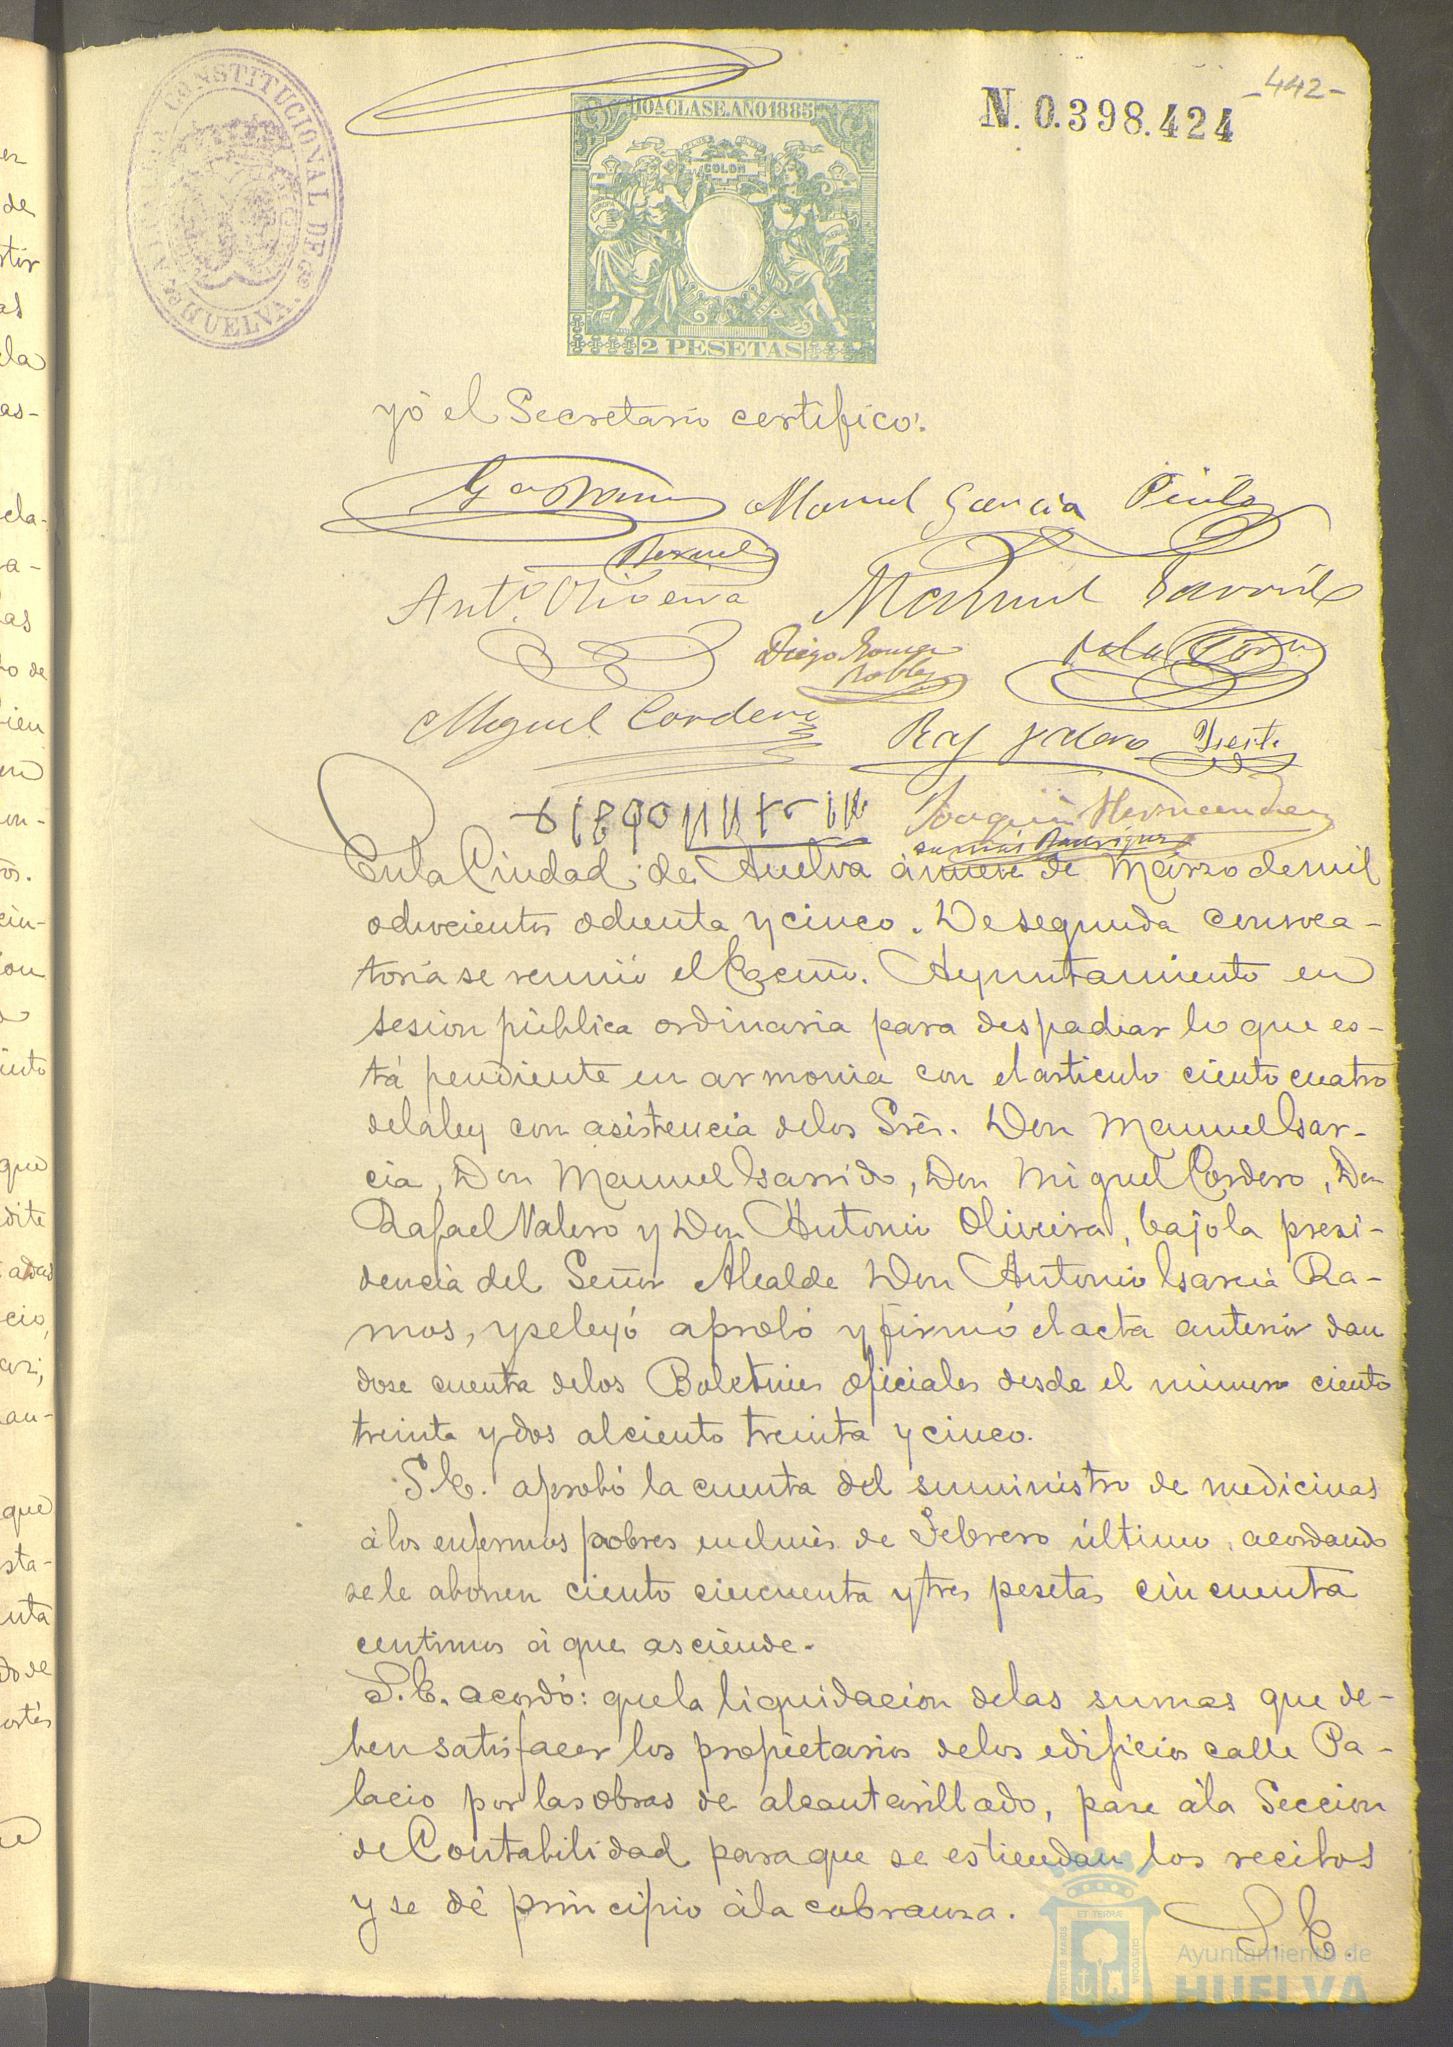 -442-
N. 0.398.424
10.ª CLASE. AÑO 1885
COLON
EUROPA
2 PESETAS
ALCALDIA CONSTITUCIONAL DE
HUELVA
yo el Secretario certifico:
Manuel García Pinto
Ant.º Oliveira
Manuel Garrido
Diego Robles
Miguel Cordero
Raf Valero
Joaquin Hernandez
En la Ciudad de Huelva á nueve de Marzo de mil
ochocientos ochenta y cinco. De segunda convoca-
toria se reunió el Excmo. Ayuntamiento en
sesion pública ordinaria para despachar lo que es-
tá pendiente en armonia con el articulo ciento cuatro
de la ley con asistencia de los Sres. Don Manuel Gar-
cia, Don Manuel Garrido, Don Miguel Cordero, Don
Rafael Valero y Don Antonio Oliveira, bajo la presi-
dencia del Señor Alcalde Don Antonio Garcia Ra-
mos, y se leyó aprobó y firmó el acta anterior dan
dose cuenta de los Boletines oficiales desde el número ciento
treinta y dos al ciento treinta y cinco.
S.E. aprobó la cuenta del suministro de medicinas
á los enfermos pobres en el mes de Febrero último, acordando
se le abonen ciento cincuenta y tres pesetas cincuenta
centimos á que asciende.
S.E. acordó: que la liquidacion de las sumas que de-
ben satisfacer los propietarios de los edificios calle Pa-
lacio por las obras de alcantarillado, pase á la Seccion
de Contabilidad para que se estiendan los recibos
y se dé principio á la cobranza.
S.E.
Ayuntamiento de
HUELVA